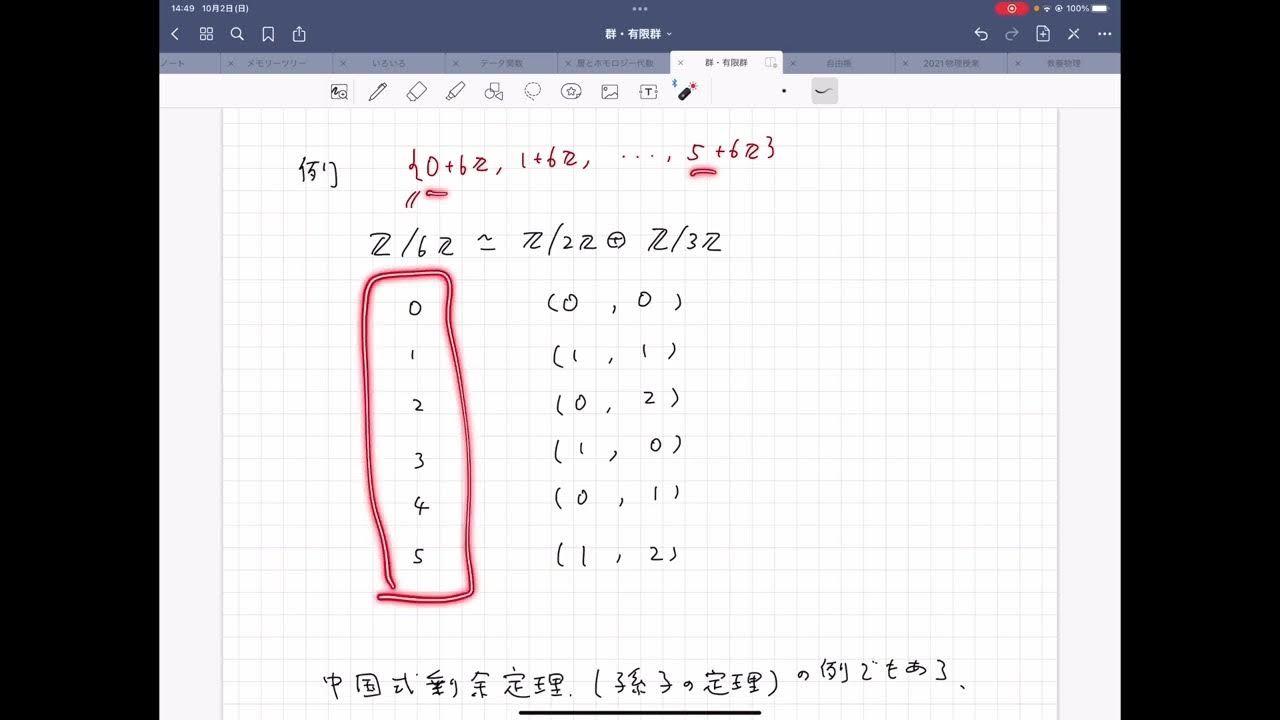 14:49 10月2日(日)
100%
群・有限群
ノート
メモリーツリー
いろいろ
テータ関数
層とホモロジー代数
群・有限群
自由帳
2021物理授業
教養物理
例
{0+6ℤ, 1+6ℤ, ..., 5+6ℤ}
ℤ/6ℤ ≃ ℤ/2ℤ ⊕ ℤ/3ℤ
0 (0, 0)
1 (1, 1)
2 (0, 2)
3 (1, 0)
4 (0, 1)
5 (1, 2)
中国式剰余定理.(孫子の定理)の例でもある、